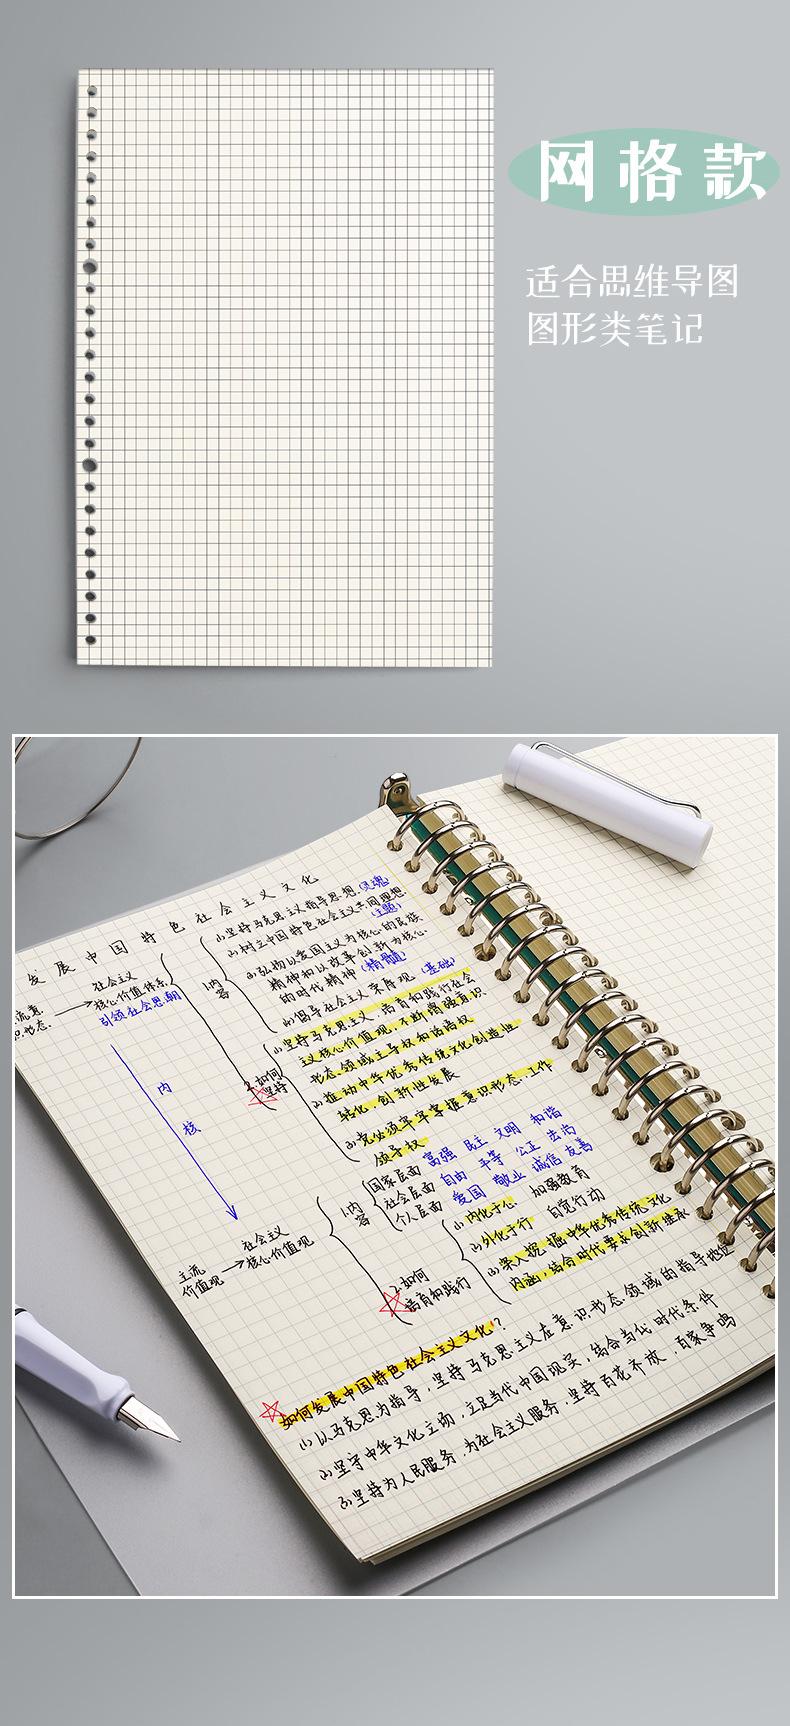 网格款
适合思维导图
图形类笔记
发展中国特色社会主义文化
社会主义
核心价值体系
引领社会思潮
流意
识形态
1.内
容
(1)坚持马克思主义指导思想.(灵魂)
(2)树立中国特色社会主义共同理想
(主题)
(3)弘扬以爱国主义为核心的民族
精神和以改革创新为核心
的时代精神 (精髓)
(4)倡导社会主义荣辱观 (基础)
2.如何
坚持
(1)坚持马克思主义,培育和践行社会
主义核心价值观,不断增强意识
形态领域主导权和话语权
(2)推动中华优秀传统文化创造性
转化,创新性发展
(3)党必须牢牢掌握意识形态工作
领导权
内
核
主流
价值观
社会主义
核心价值观
1.内
容
国家层面 富强 民主 文明 和谐
社会层面 自由 平等 公正 法治
个人层面 爱国 敬业 诚信 友善
2.如何
培育和践行
(1)内化于心 加强教育
(2)外化于行 自觉行动
(3)深入挖掘中华优秀传统文化
内涵,结合时代要求创新继承
如何发展中国特色社会主义文化?
(1)以马克思为指导,坚持马克思主义在意识形态领域的指导地位
(2)坚守中华文化立场,立足当代中国现实,结合当代时代条件
(3)坚持为人民服务,为社会主义服务,坚持百花齐放,百家争鸣